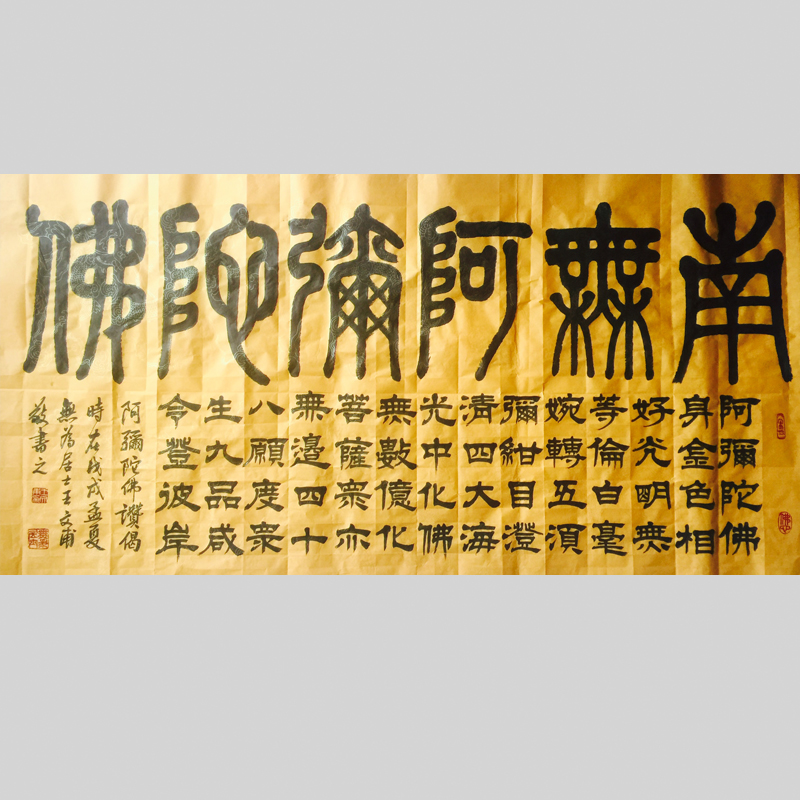 南無阿彌陀佛
阿彌陀佛
身金色相
好光明無
等倫白毫
婉轉五須
彌紺目澄
清四大海
光中化佛
無數億化
菩薩衆亦
無邊四十
八願度衆
生九品咸
令登彼岸
阿彌陀佛讚偈
時在戊戌孟夏
無為居士王文甫
敬書之